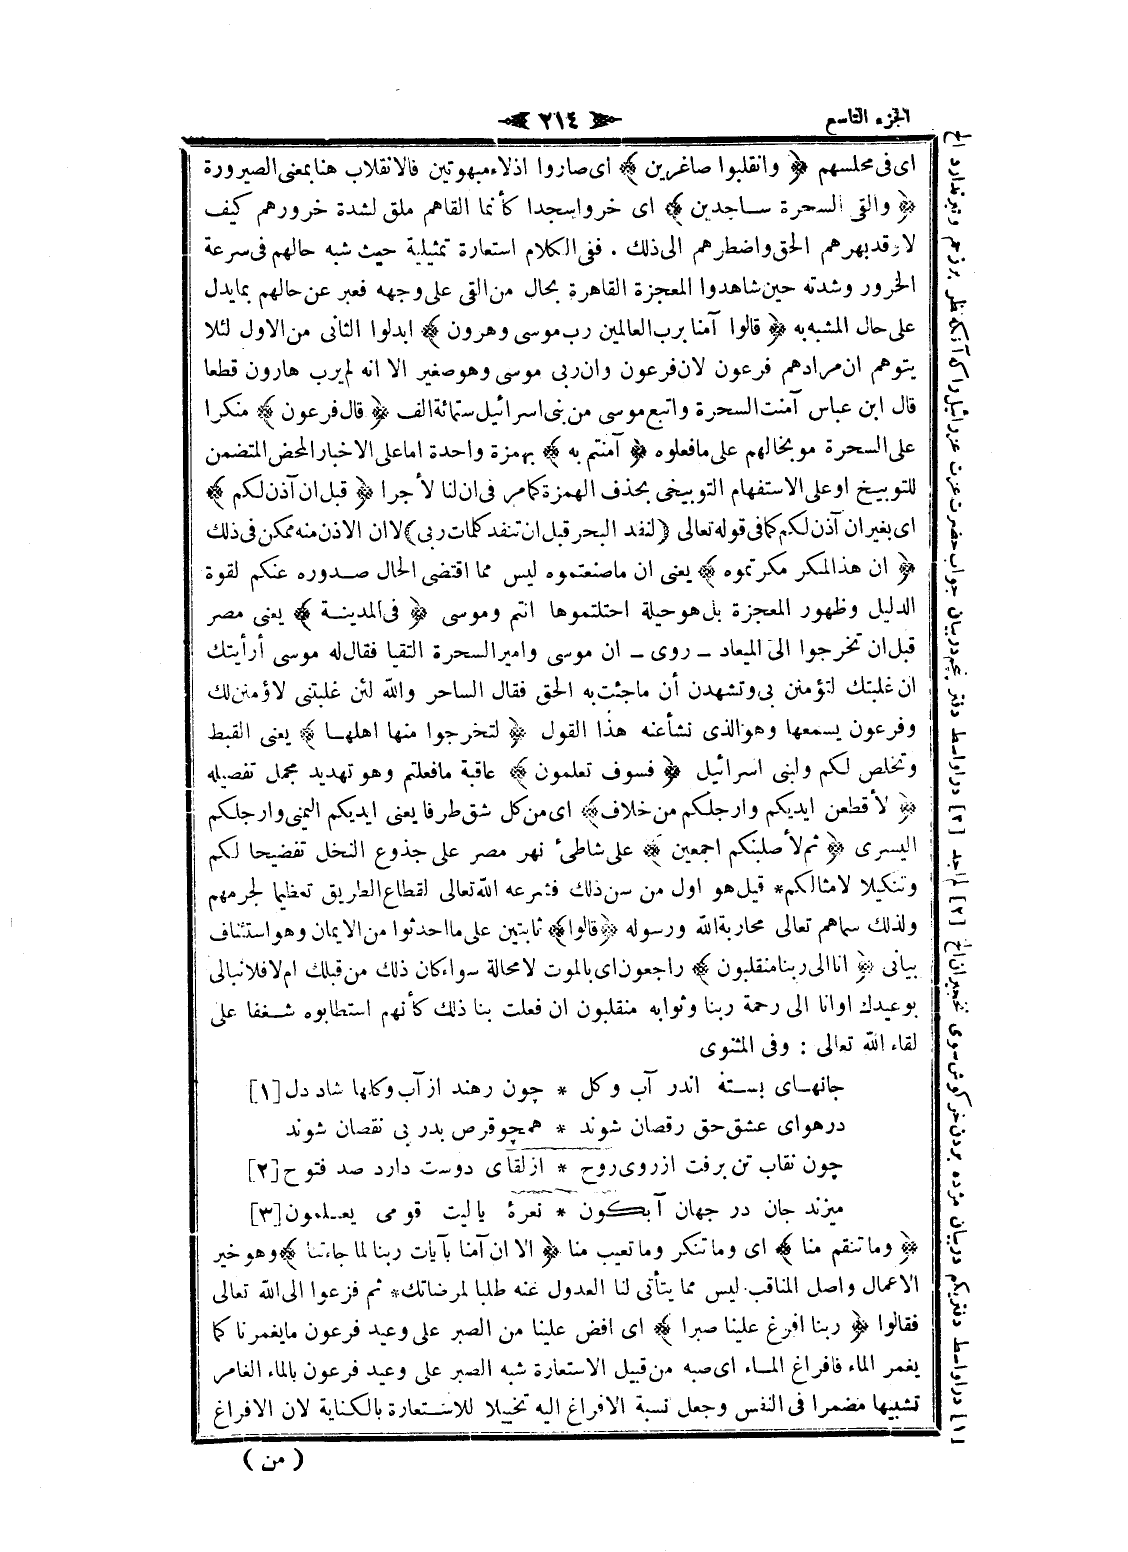 الجزء التاسع
﴿ ٢١٤ ﴾
اى فى مجلسهم ﴿ وانقلبوا صاغرين ﴾ اى صاروا اذلاء مبهوتين فالانقلاب هنا بمعنى الصيرورة
﴿ والقى السحرة ساجدين ﴾ اى خروا سجدا كأنما القاهم ملق لشدة خرورهم كيف
لا وقد بهرهم الحق واضطرهم الى ذلك . ففى الكلام استعارة تمثيلية حيث شبه حالهم فى سرعة
الخرور وشدته حين شاهدوا المعجزة القاهرة بحال من القى على وجهه فعبر عن حالهم بما يدل
على حال المشبه به ﴿ قالوا آمنا برب العالمين رب موسى وهرون ﴾ ابدلوا الثانى من الاول لئلا
يتوهم ان مرادهم فرعون لان فرعون وان ربى موسى وهو صغير الا انه لم يرب هارون قطعا
قال ابن عباس آمنت السحرة واتبع موسى من بنى اسرائيل ستمائة الف ﴿ قال فرعون ﴾ منكرا
على السحرة موبخالهم على ما فعلوه ﴿ آمنتم به ﴾ بهمزة واحدة اما على الاخبار المحض المتضمن
للتوبيخ او على الاستفهام التوبيخى بحذف الهمزة كما مر فى ان لنا لأجرا ﴿ قبل ان آذن لكم ﴾
اى بغير ان آذن لكم كما فى قوله تعالى ( لنفد البحر قبل ان تنفد كلمات ربى ) لا ان الاذن منه ممكن فى ذلك
﴿ ان هذا لمكر مكرتموه ﴾ يعنى ان ما صنعتموه ليس مما اقتضى الحال صدوره عنكم لقوة
الدليل وظهور المعجزة بل هو حيلة احتلتموها انتم وموسى ﴿ فى المدينة ﴾ يعنى مصر
قبل ان تخرجوا الى الميعاد ــ روى ــ ان موسى وامير السحرة التقيا فقال له موسى أرأيتك
ان غلبتك لتؤمنن بى وتشهدن أن ما جئت به الحق فقال الساحر والله لئن غلبتنى لاؤمنن لك
وفرعون يسمعها وهو الذى نشأ عنه هذا القول ﴿ لتخرجوا منها اهلها ﴾ يعنى القبط
وتخلص لكم ولبنى اسرائيل ﴿ فسوف تعلمون ﴾ عاقبة ما فعلتم وهو تهديد مجمل تفصيله
﴿ لأقطعن ايديكم وارجلكم من خلاف ﴾ اى من كل شق طرفا يعنى ايديكم اليمنى وارجلكم
اليسرى ﴿ ثم لأصلبنكم اجمعين ﴾ على شاطئ نهر مصر على جذوع النخل تفضيحا لكم
وتنكيلا لامثالكم * قيل هو اول من سن ذلك فشرعه الله تعالى لقطاع الطريق تعظيما لجرمهم
ولذلك سماهم تعالى محاربة الله ورسوله ﴿ قالوا ﴾ ثابتين على ما احدثوا من الايمان وهو استئناف
بيانى ﴿ انا الى ربنا منقلبون ﴾ راجعون اى بالموت لا محالة سواء كان ذلك من قبلك ام لا فلا نبالى
بوعيدك او انا الى رحمة ربنا وثوابه منقلبون ان فعلت بنا ذلك كأنهم استطابوه شغفا على
لقاء الله تعالى : وفى المثنوى
جانهاى بسته اندر آب وكل * چون رهند از آب وكلها شاد دل [١]
در هواى عشق حق رقصان شوند * همچو قرص بدر بى نقصان شوند
چون نقاب تن برفت از روى روح * از لقاى دوست دارد صد فتوح [٢]
ميزند جان در جهان آبكون * نعرۀ يا ليت قومى يعلمون [٣]
﴿ وما تنقم منا ﴾ اى وما تنكر وما تعيب منا ﴿ الا ان آمنا بآيات ربنا لما جاءتنا ﴾ وهو خير
الاعمال واصل المناقب ليس مما يتأتى لنا العدول عنه طلبا لمرضاتك * ثم فزعوا الى الله تعالى
فقالوا ﴿ ربنا افرغ علينا صبرا ﴾ اى افض علينا من الصبر على وعيد فرعون ما يغمرنا كما
يغمر الماء فافراغ الماء اى صبه من قبيل الاستعارة شبه الصبر على وعيد فرعون بالماء الغامر
تشبيها مضمرا فى النفس وجعل نسبة الافراغ اليه تخييلا للاستعارة بالكناية لان الافراغ
( من )
[١] در اواسط دفتر يكم در بيان مژده بردن خركوش سوى نخجيران الخ [٢] لم اجد [٣] در اواسط دفتر پنجم در بيان جواب حضرت عزت عزرائيل را كه آنكه نظر